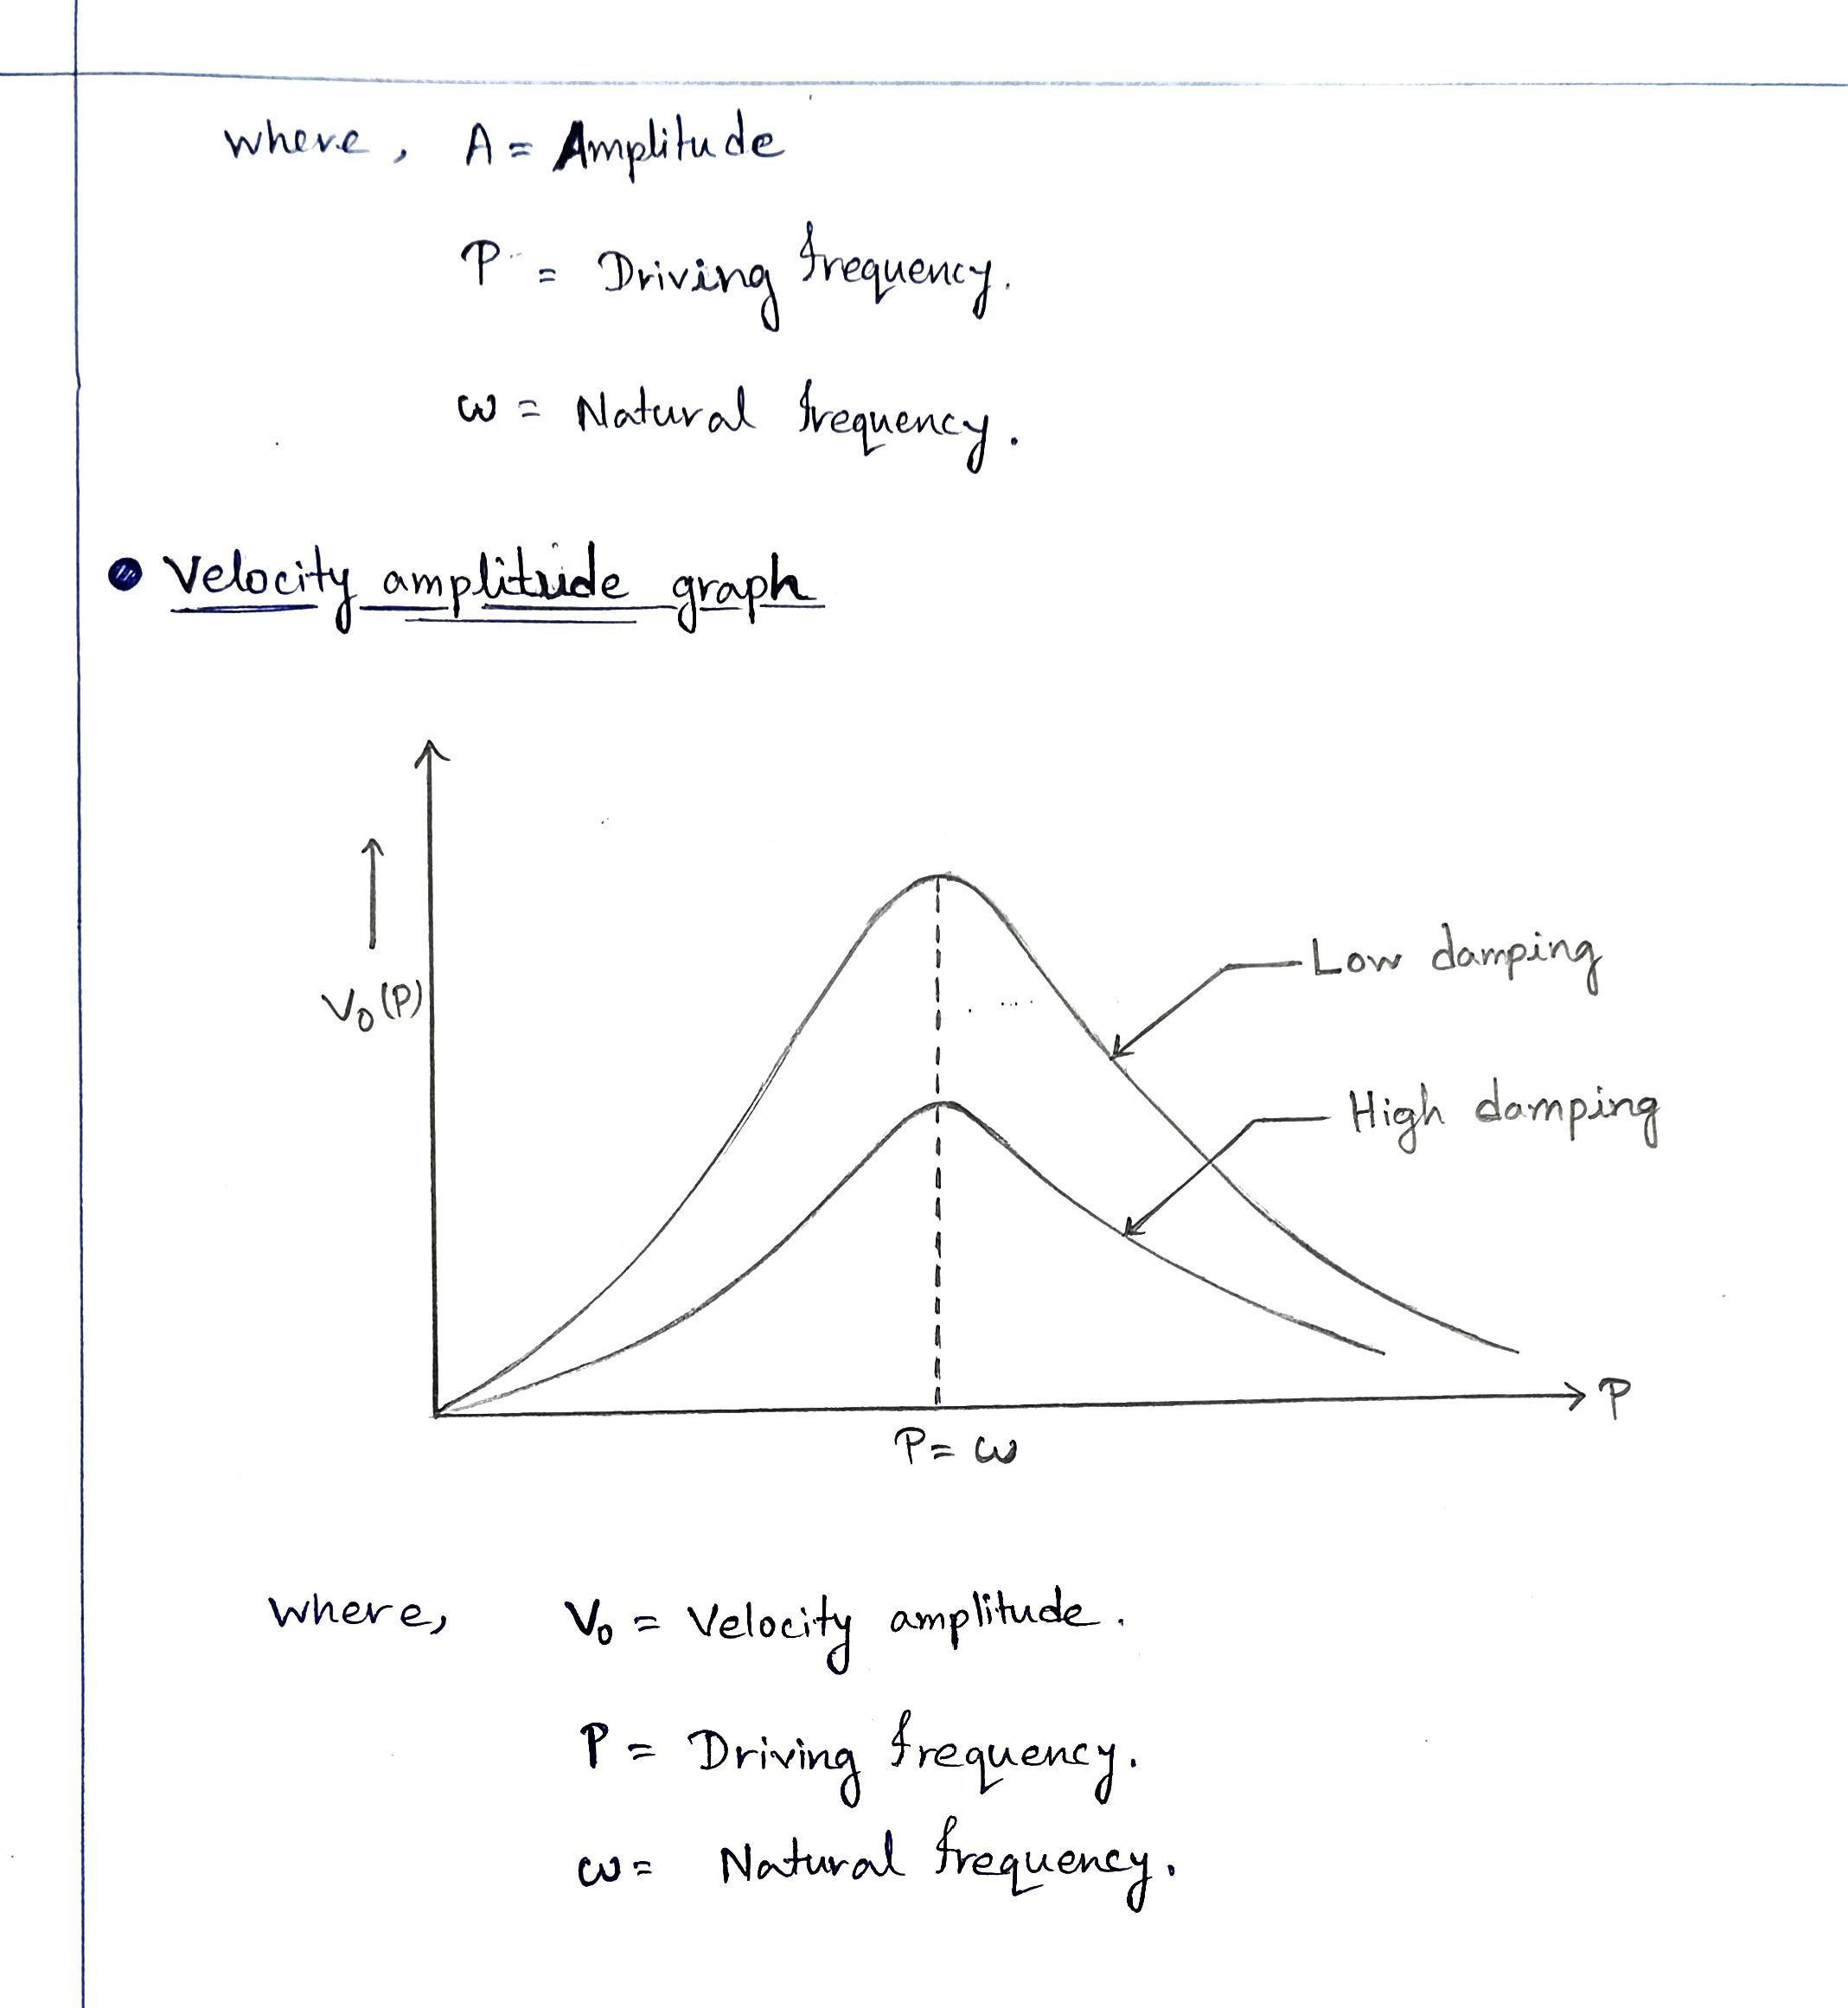 where, A = Amplitude
P = Driving frequency.
ω = Natural frequency.
Velocity amplitude graph
V₀(P)
Low damping
High damping
P
P = ω
where, V₀ = Velocity amplitude.
P = Driving frequency.
ω = Natural frequency.